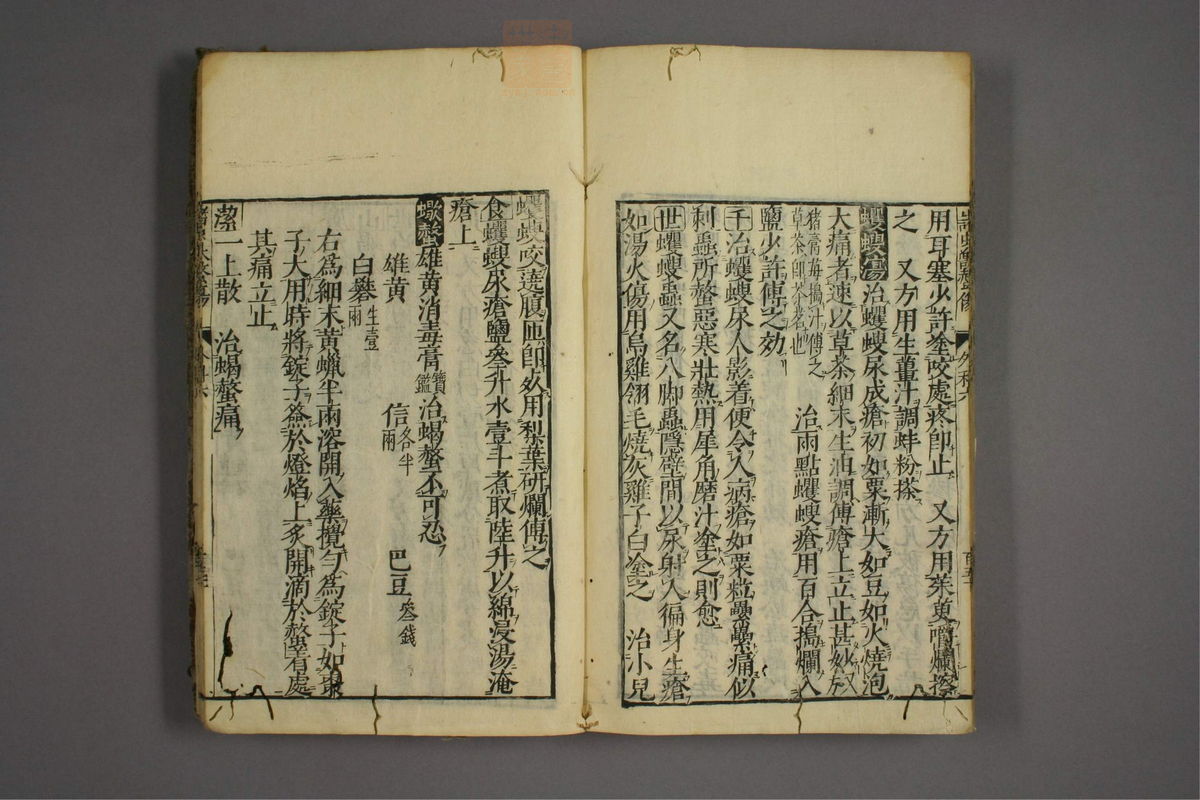 用耳塞少許塗咬處疼卽止　又方用茱萸嚼爛擦
之　又方用生薑汁調蚌粉搽
蠼螋瘍治蠼螋尿成瘡初如粟漸大如豆如火燒泡
大痛者速以草茶細末生油調傅瘡上立止甚妙
猪膏苺搗汁傅之
草茶卽茶茗也
治兩點蠼螋瘡用百合搗爛入
鹽少許傅之効
千治蠼螋尿人影着便令人病瘡如粟粒纍纍痛似
刺蟲所螫惡寒壯熱用犀角磨汁塗之則愈
世蠼螋蟲又名八脚蟲隱壁間以尿射人徧身生瘡
如湯火傷用烏雞翎毛燒灰雞子白塗之　治小兒
蠼螋咬遶腹匝卽用梨葉研爛傅之
食蠼螋尿瘡鹽叄升水壹斗煮取陸升以綿浸湯淹
瘡上
蠍螫雄黃消毒膏寶鑑治蝎螫不可忍
雄黃　信各半兩　巴豆叄錢
白礬生壹兩
右爲細末黃蝋半兩溶開入藥攪勻爲錠子如棗
子大用時將錠子簽於燈焰上炙開滴於螫着處
其痛立止
潔一上散　治蝎螫痛